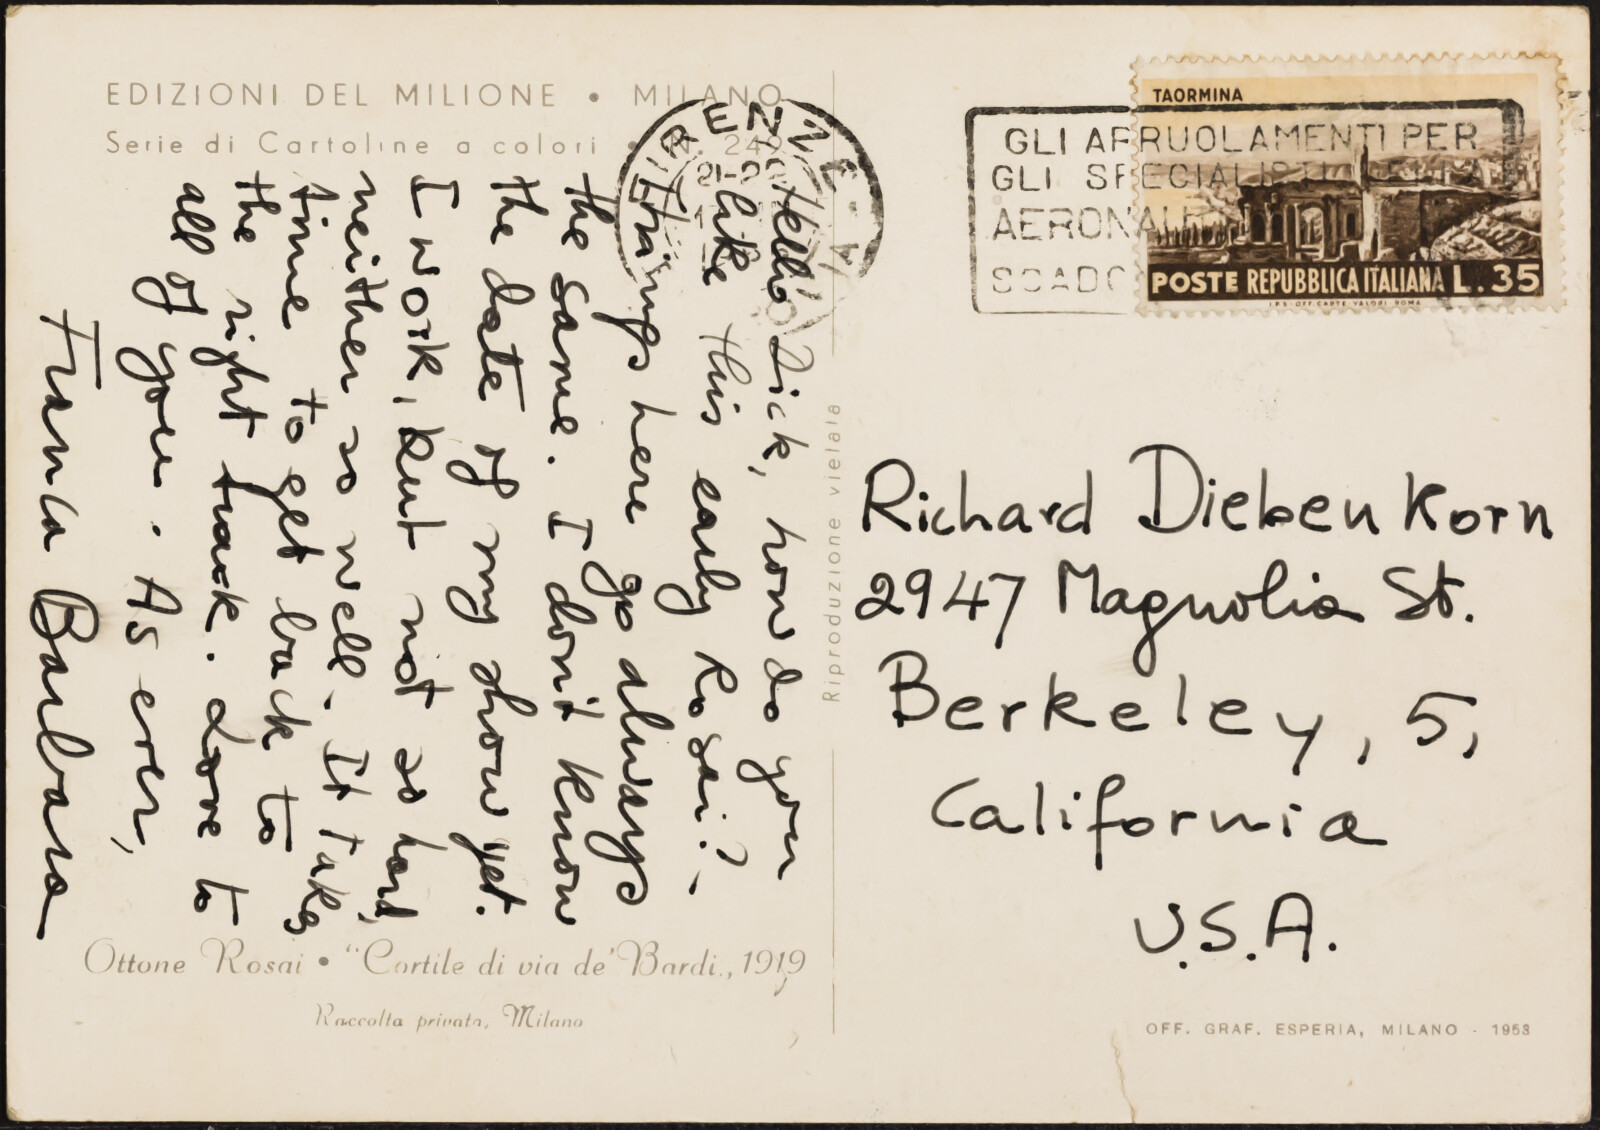 EDIZIONI DEL MILIONE • MILANO
Serie di Cartoline a colori • N. 242
Hello Dick, how do you
like this early Rosai?
Things here go always
the same. I don't know
the date of my show yet.
I work, but not so hard,
neither so well. It takes
time to get back to
the right track. Love to
all of you. As ever,
Franca Barbara
Ottone Rosai • "Cortile di via de' Bardi„ 1919
Raccolta privata, Milano
Riproduzione vietata
FIRENZE
21-22
GLI ARRUOLAMENTI PER
GLI SPECIALISTI
SCADO
TAORMINA
POSTE REPUBBLICA ITALIANA L. 35
I.P.S-OFF. CARTE-VALORI ROMA
Richard Diebenkorn
2947 Magnolia St.
Berkeley, 5,
California
U.S.A.
OFF. GRAF. ESPERIA, MILANO - 1953